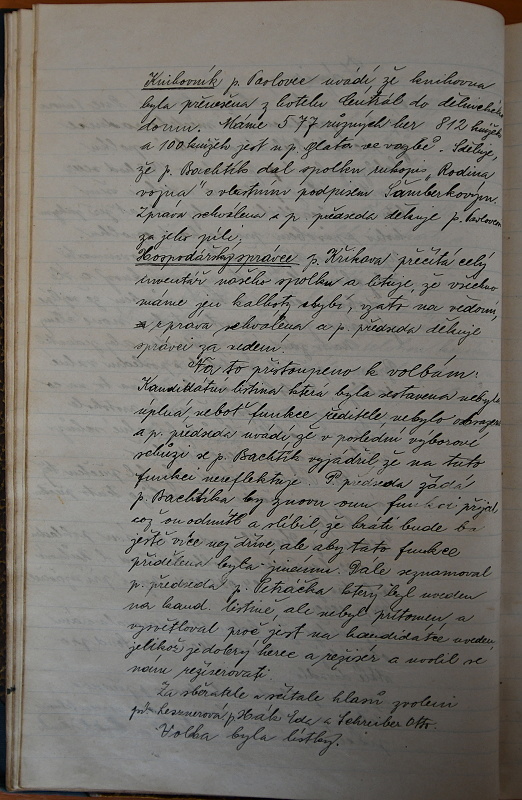 Knihovník p. Pavlovec uvádí, že knihovna
byla přenesena z hotelu Centrál do dělnického
domu. Máme 577 různých her 812 knížek
a 100 knížek jest u p. Zlata ve vazbě. Sděluje,
že p. Bachtík dal spolku rukopis „Rodina
vojna" s vlastním podpisem Šamberkovým.
Zpráva schválena a p. předseda děkuje p. Pavlovcovi
za jeho píli.
Hospodářský správce p. Křikava přečítá celý
inventář našeho spolku a lituje, že všechno
máme jen kalhoty chybí, vzato na vědomí,
zpráva schválena a p. předseda děkuje
správci za vedení.
Na to přistoupeno k volbám:
Kandidátní listina která byla sestavena nebyla
úplná, neboť funkce ředitele, nebylo obsazeno
a p. předseda uvádí, že v poslední výborové
schůzi se p. Bachtík vyjádřil že na tuto
funkci nereflektuje. P. předseda žádá
p. Bachtíka by znovu onu funkci přijal,
což on odmítl a slíbil, že hráti bude
ještě více nej dříve, ale aby tato funkce
přidělena byla jinému. Dále seznamoval
p. předseda p. Petráčka který byl uveden
na kand. listině, ale nebyl přítomen, a
vysvětloval proč jest na kandidátce uveden,
jelikož je dobrý herec a režisér a uvolil se
nám režiserovati.
Za sběratele a sčítale hlasů zvoleni
p. Hák Eda a Schreiber Otto.
Volba byla lístky.